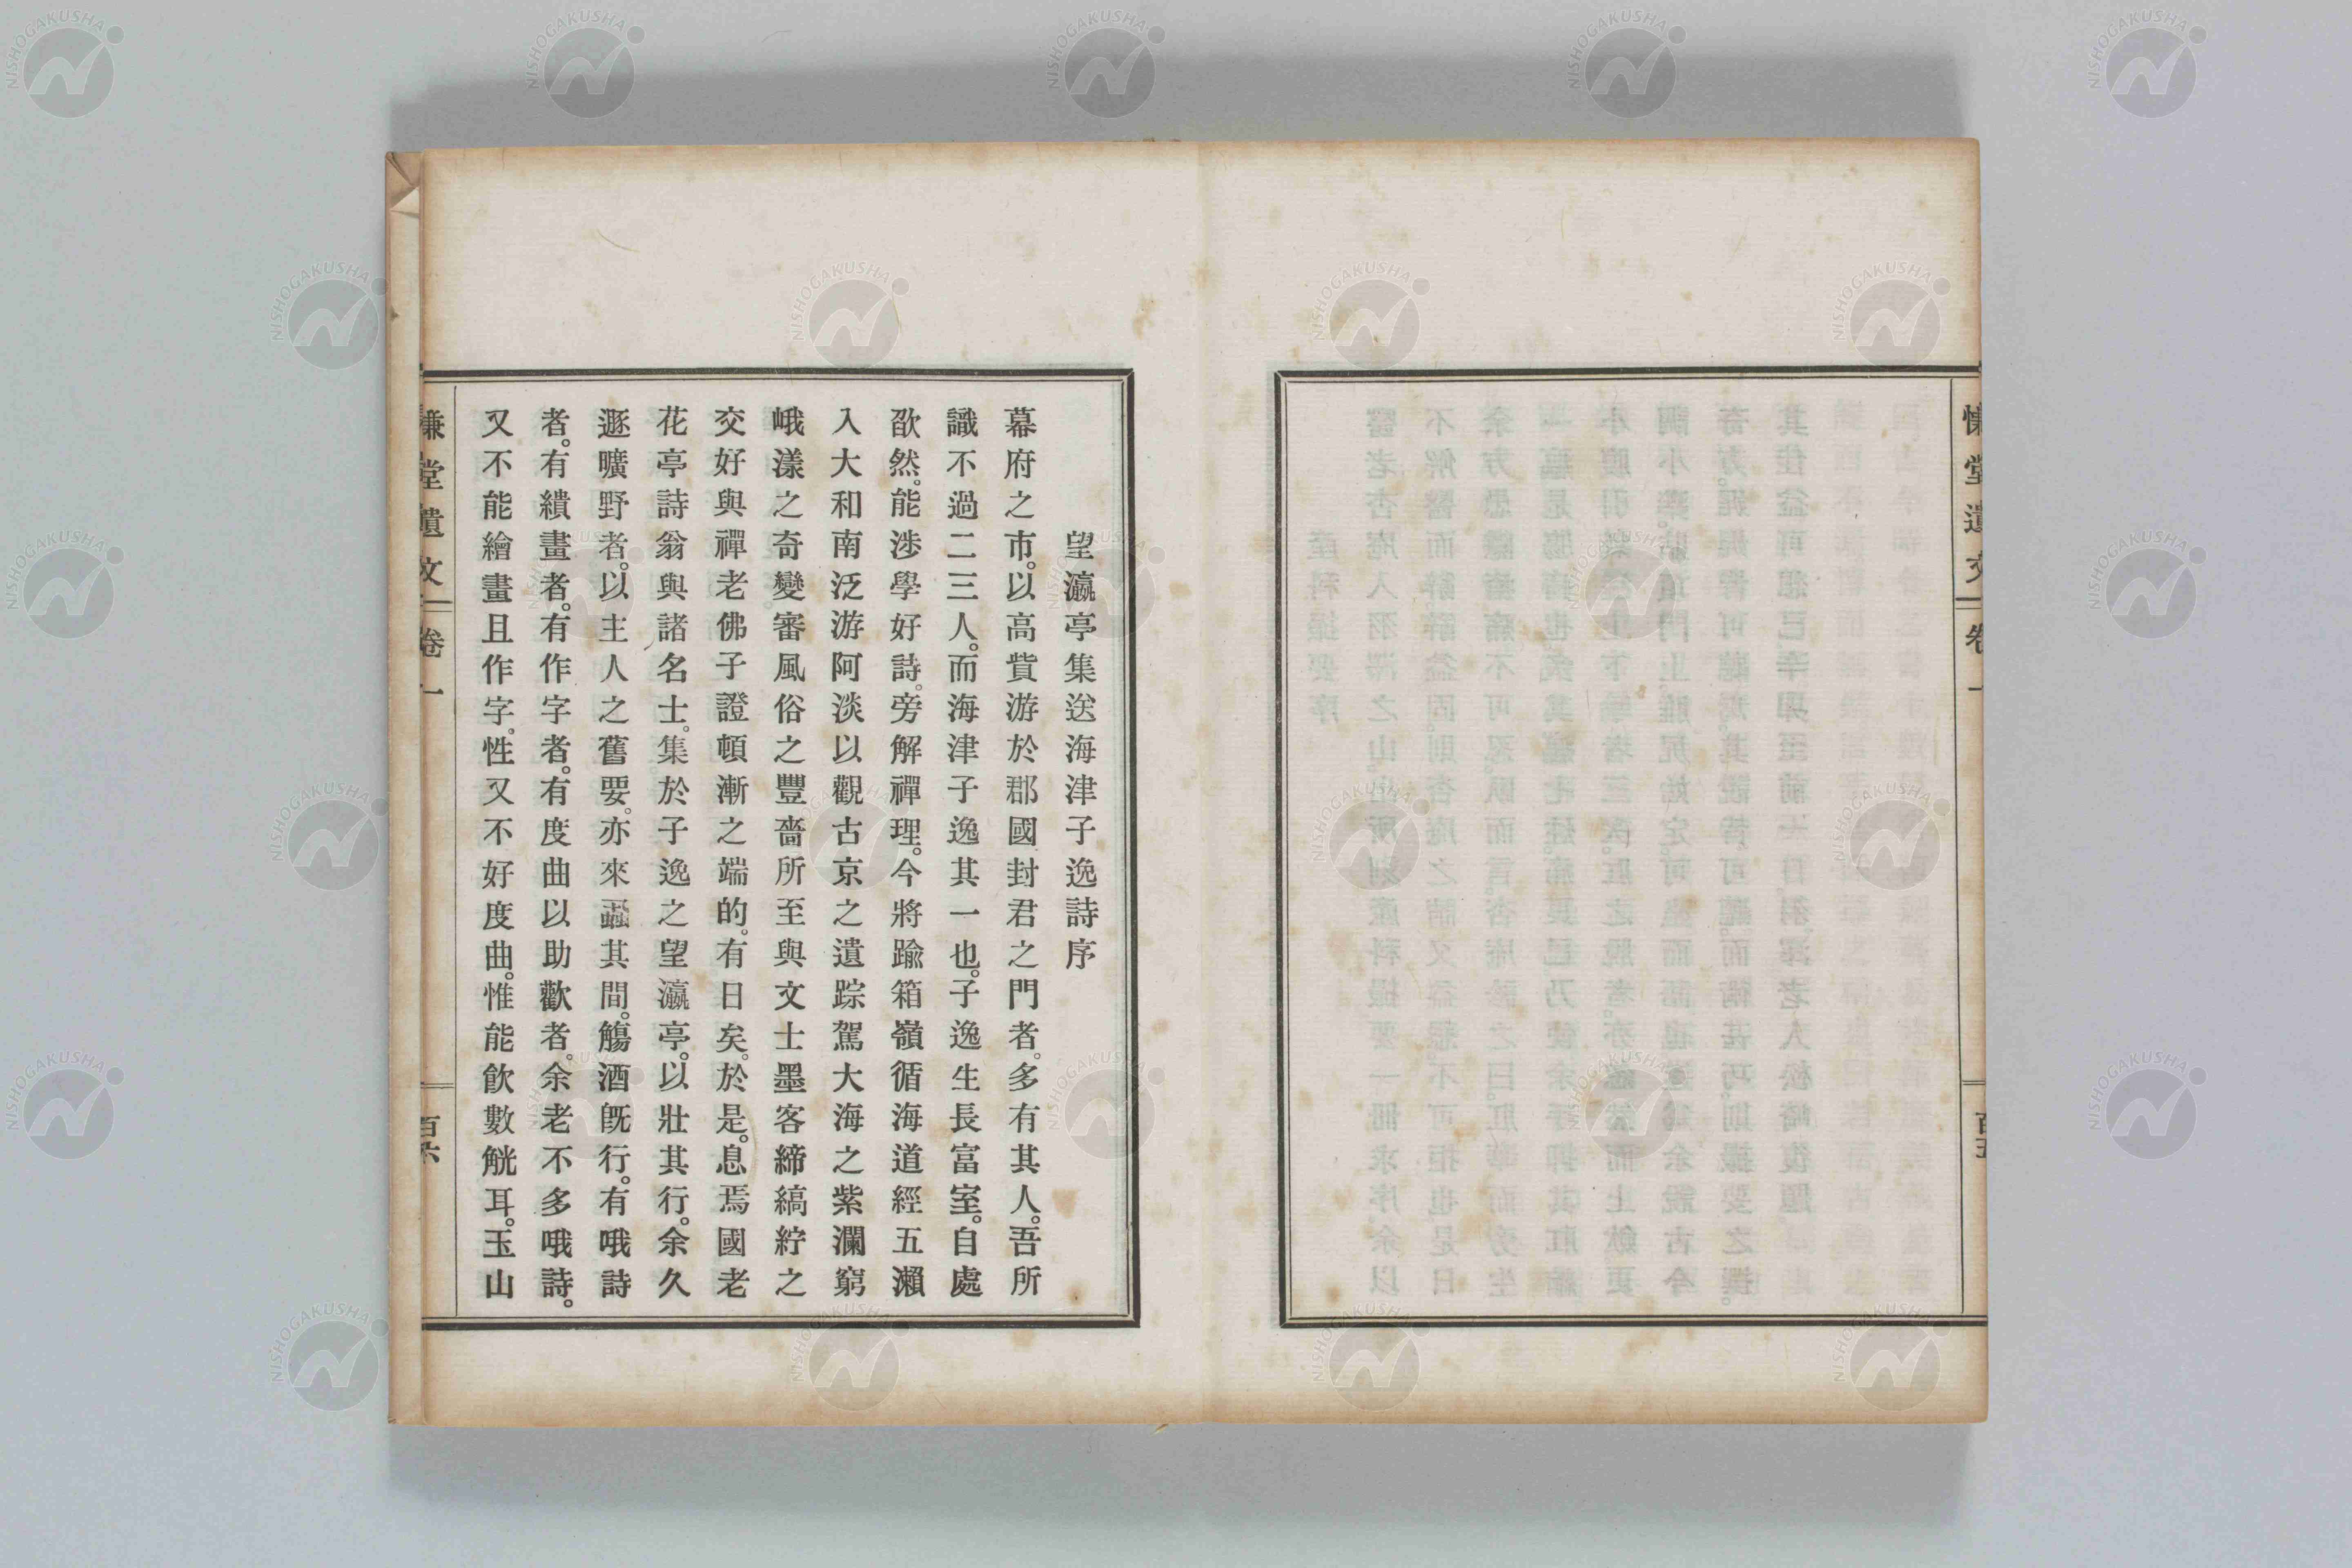 慊堂遺文 卷一
望瀛亭集送海津子逸詩序
幕府之市。以高貲游於郡國封君之門者。多有其人。吾所
識不過二三人。而海津子逸其一也。子逸生長富室。自處
欿然。能涉學好詩。旁解禪理。今將踰箱嶺循海道經五瀨
入大和南泛游阿淡以觀古京之遺踪駕大海之紫瀾窮
峨漾之奇變審風俗之豐嗇所至與文士墨客締縞紵之
交好與禪老佛子證頓漸之端的。有日矣。於是。息焉國老
花亭詩翁與諸名士。集於子逸之望瀛亭。以壯其行。余久
遯曠野者。以主人之舊要。亦來厠其間。觴酒既行。有哦詩
者。有繢畫者。有作字者。有度曲以助歡者。余老不多哦詩。
又不能繪畫且作字。性又不好度曲。惟能飮數觥耳。玉山
慊堂遺文 卷一
百六
NISHOGAKUSHA